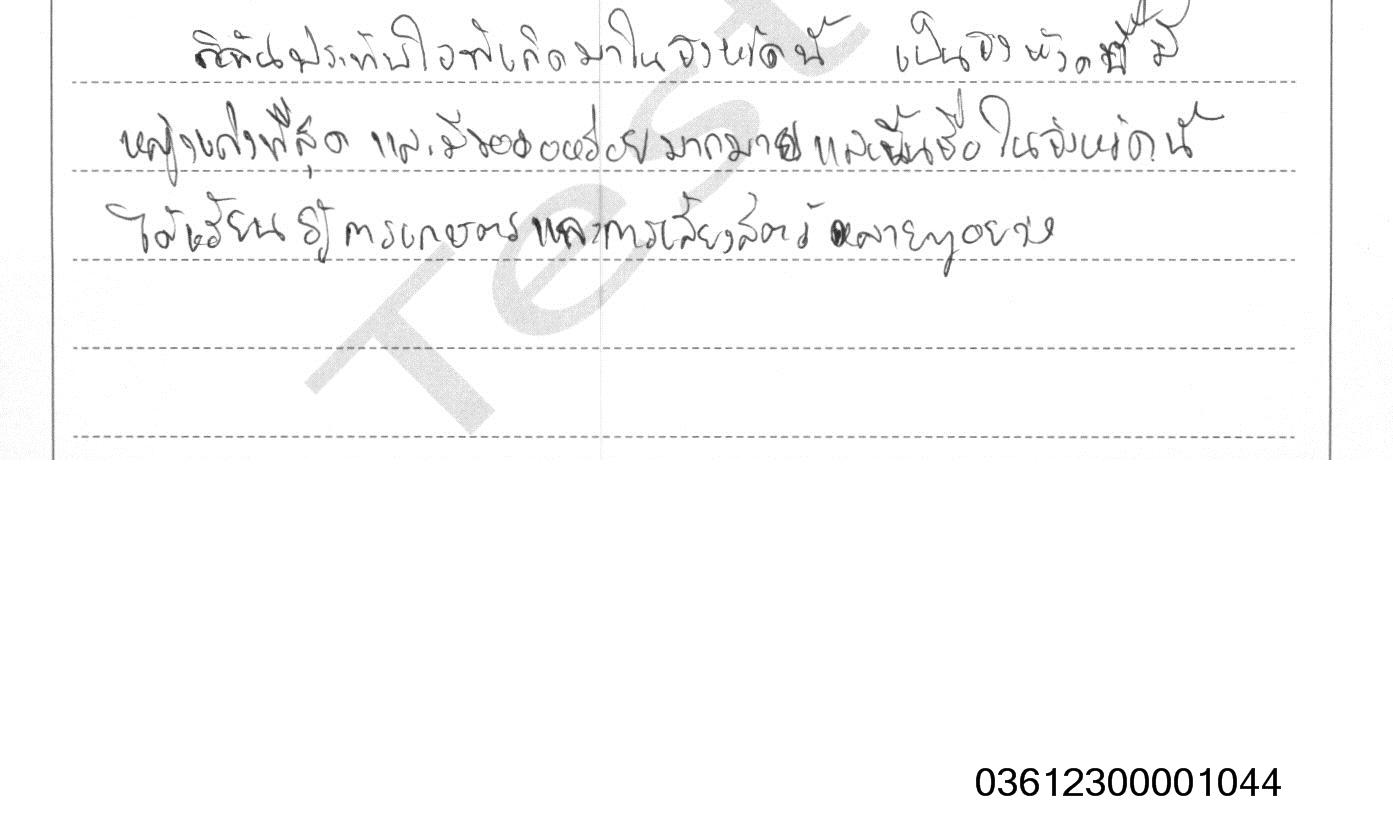 ดิฉันประทับใจที่เกิดมาในจังหวัดนี้ เป็นจังหวัดที่มี
และมีของอร่อยมากมาย ในจังหวัดนี้
ได้เรียนรู้การเกษตรและการเลี้ยงสัตว์หลายๆอย่าง
Test
03612300001044